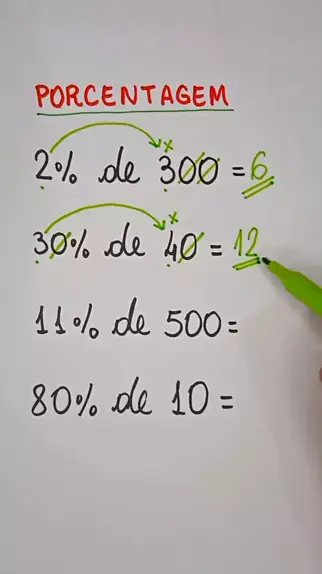 PORCENTAGEM
2% de 300 = 6
30% de 40 = 12
11% de 500 =
80% de 10 =